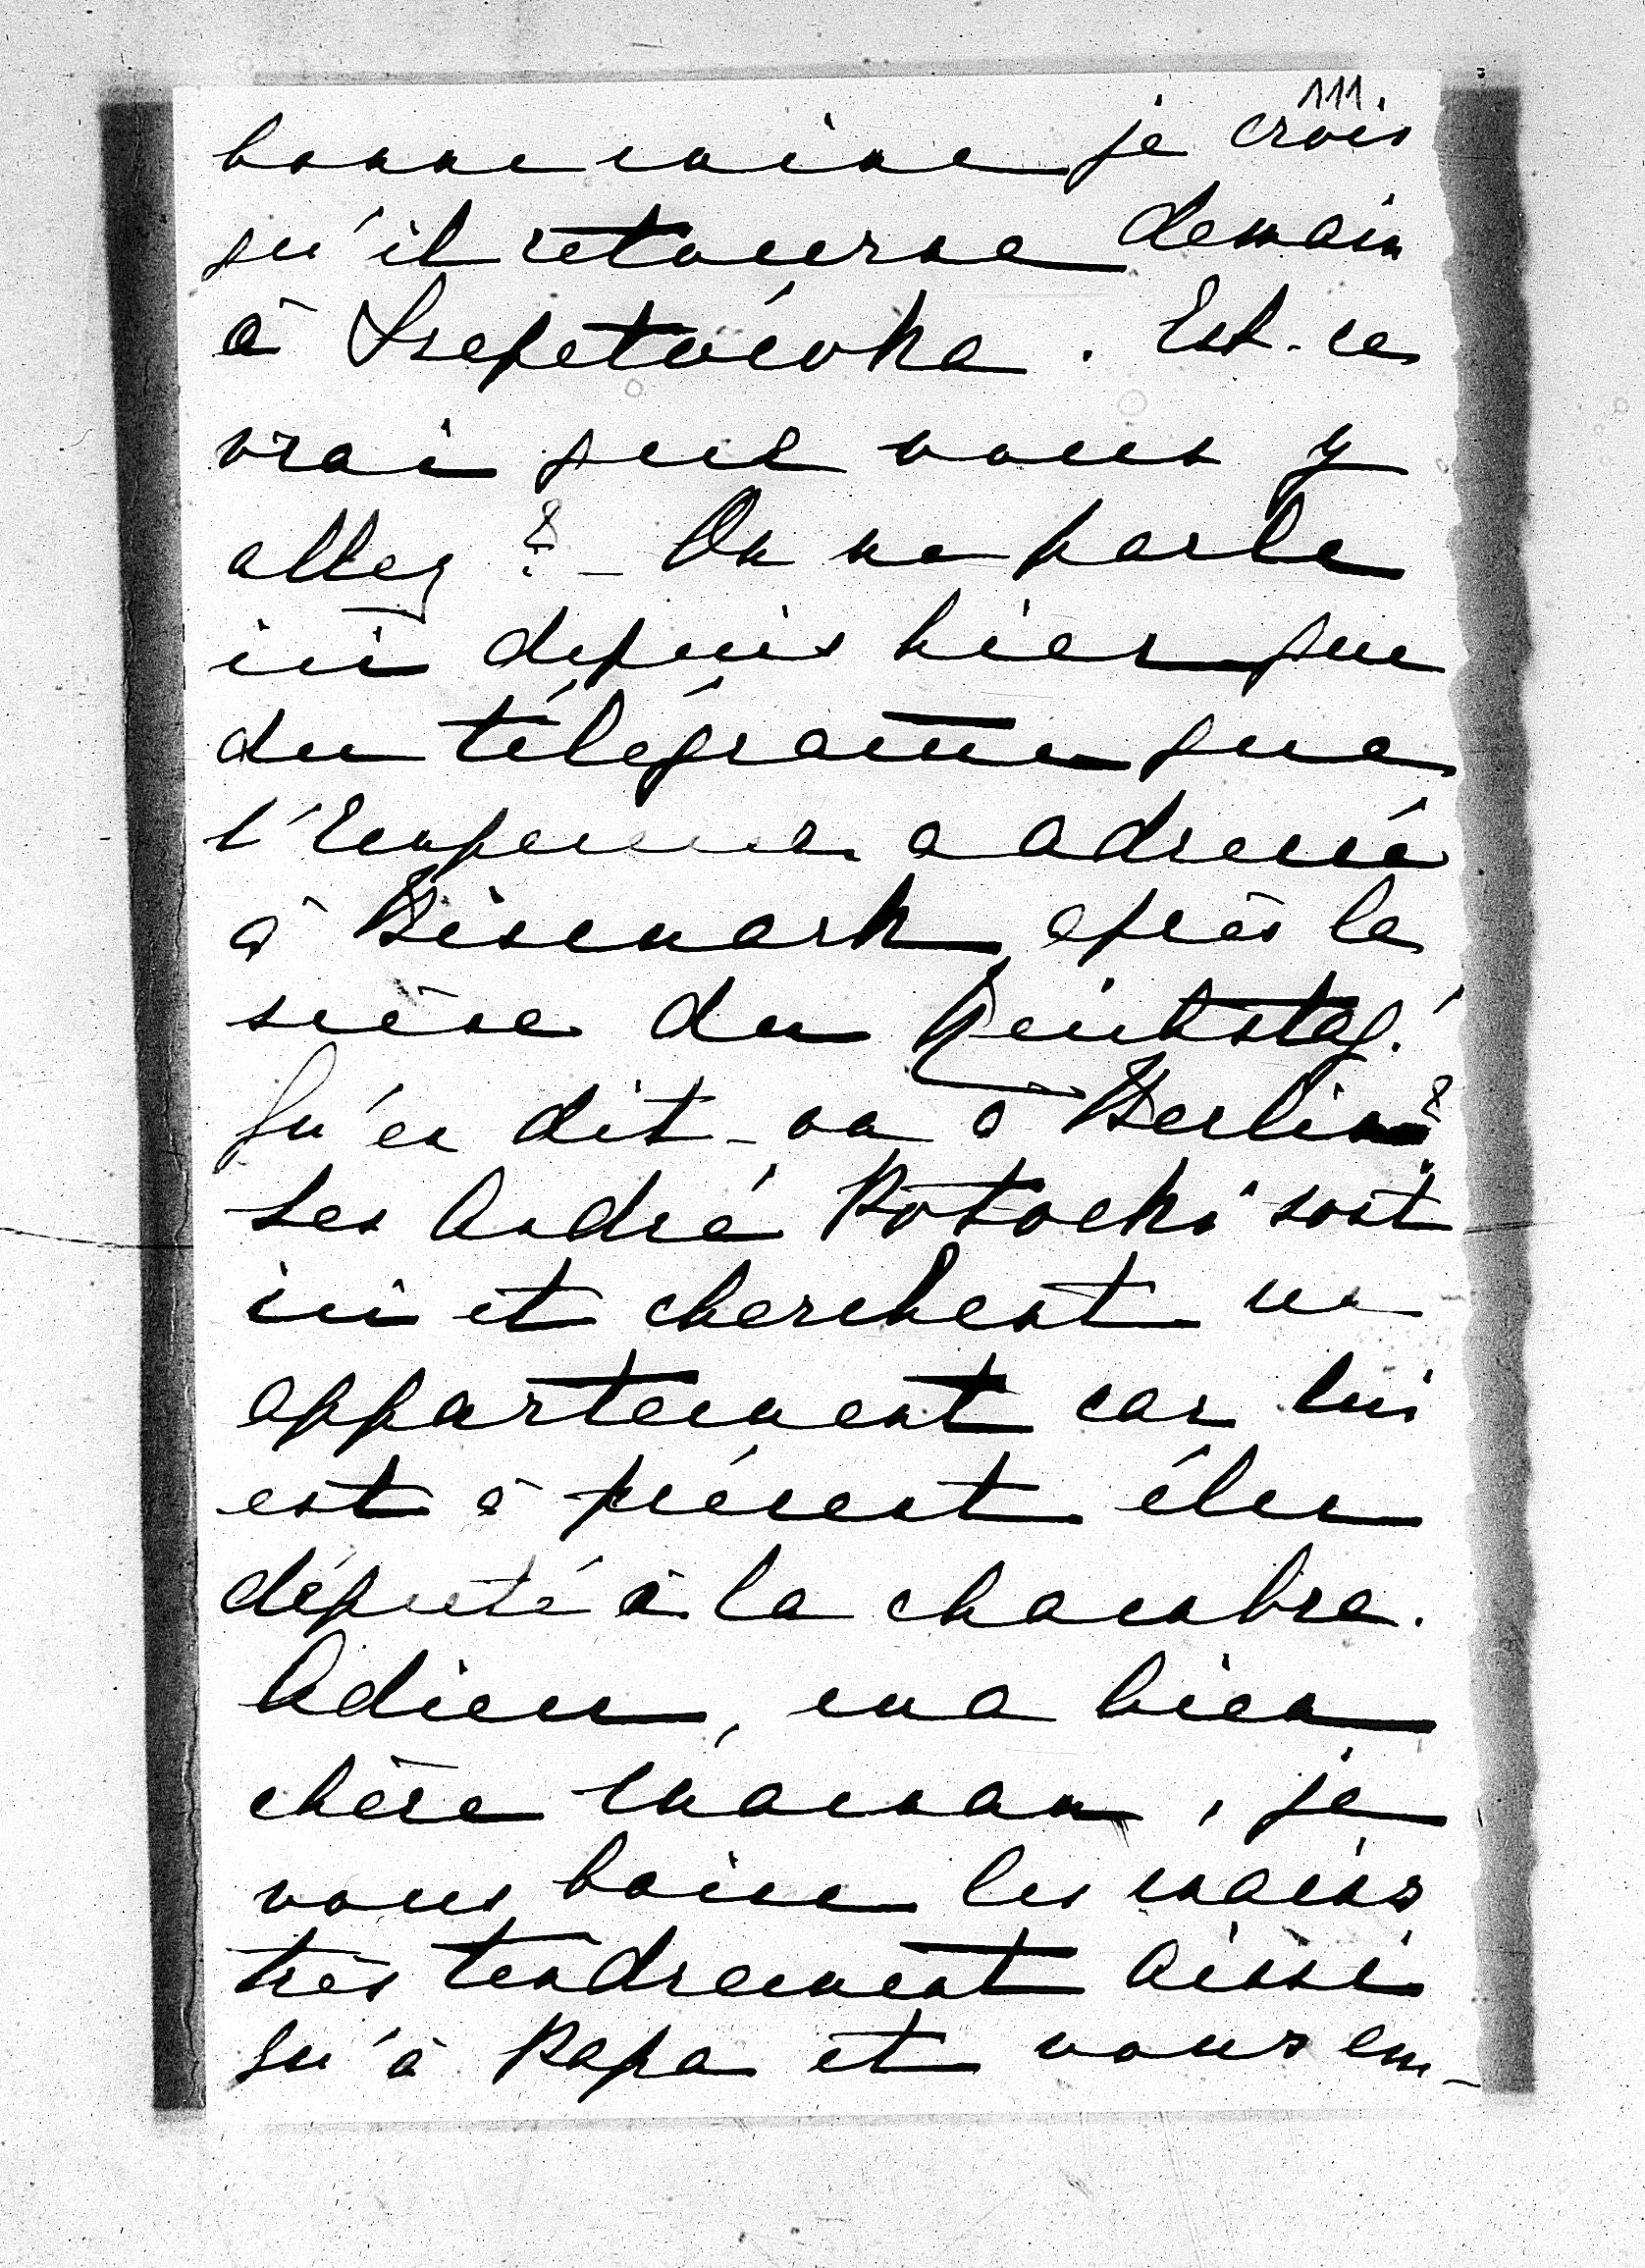 111.
bonne mine je crois
qu'il retourne demain
à Szepetówka. Est-ce
vrai que vous y
allez ? – On ne parle
ici depuis hier que
du télégramme que
l'Empereur a adressé
à Bismark après la
scène du Reichstag!
Qu'en dit-on à Berlin?
Les André Potocki sont
ici et cherchent un
appartement car lui
est à présent élu
député à la chambre.
Adieu, ma bien
chère Maman, je
vous baise les mains
très tendrement ainsi
qu'à Papa et vous em-